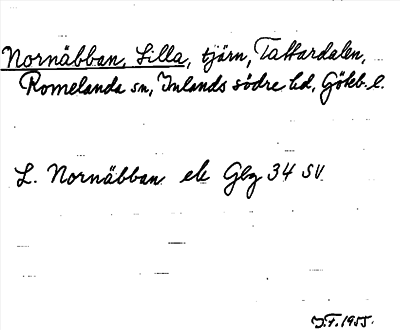 Nornäbban, Lilla, tjärn, Tattardalen,
Romelanda sn, Inlands södre hd, Götebg. l.
L. Nornäbban ek Gbg 34 SV.
J.F. 1955.